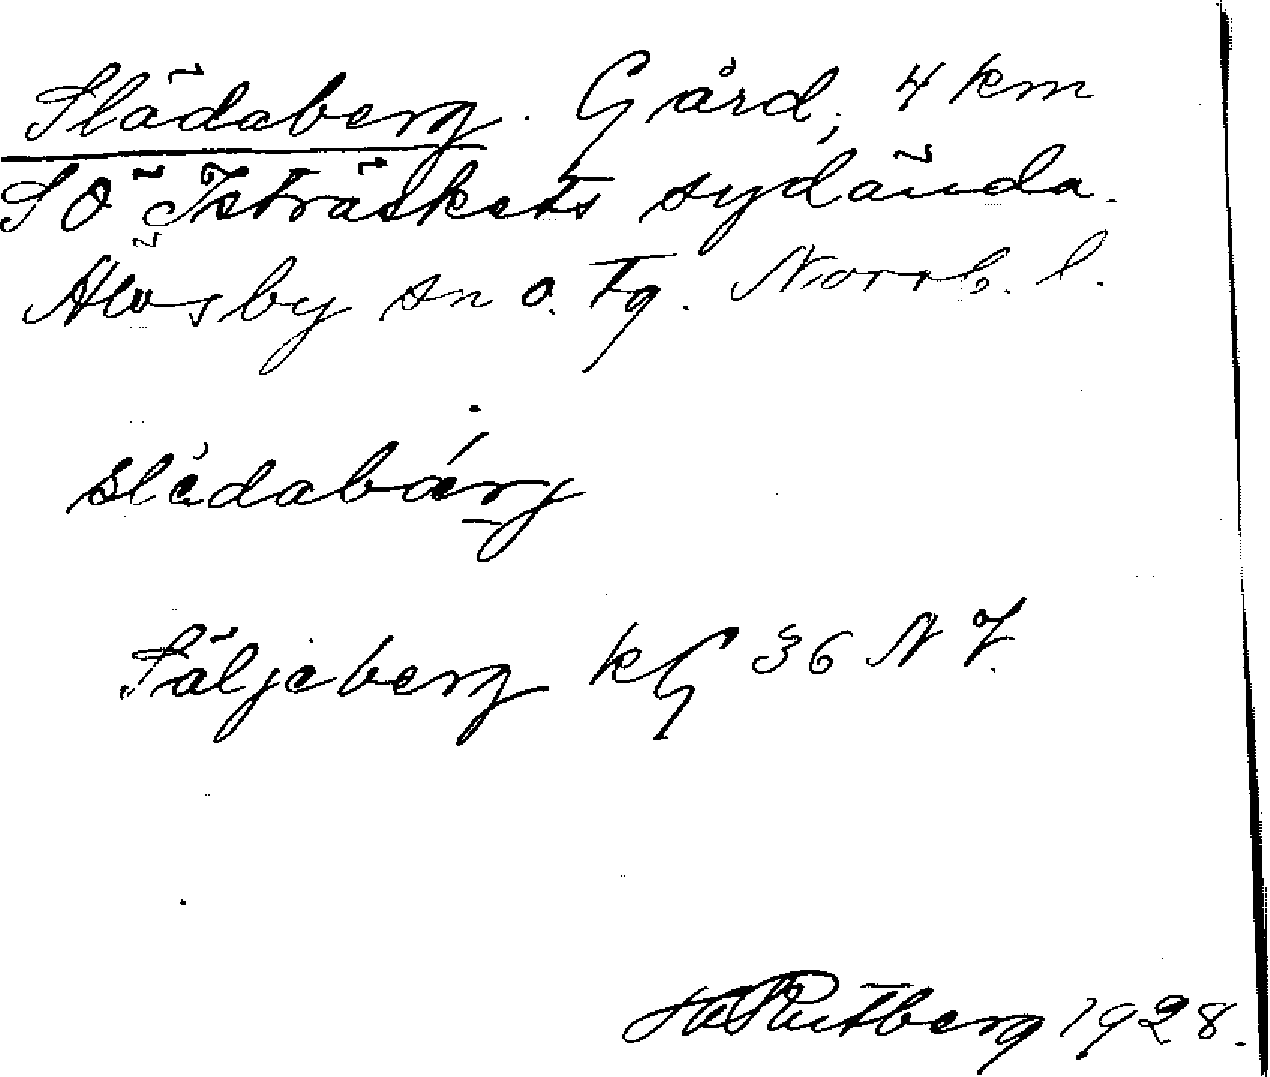 Slädaberg. Gård, 4 km
SÖ Isträskets sydända.
Älvsby sn o. tg. Norrb. l.
slädabárg
Säljeberg kG 36 N 7.
Rutberg 1928.